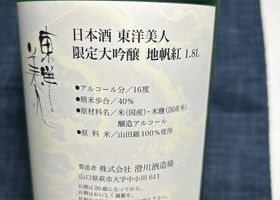 東洋美人
日本酒 東洋美人
限定大吟醸 地帆紅 1.8L
●アルコール分／16度
●精米歩合／40%
●原材料名／米(国産)・米麹(国産米)
醸造アルコール
●原料米／山田錦100%使用
製造者 株式会社 澄川酒造場
山口県萩市大字中小川611
お酒は20歳になってから。
お酒はおいしく適量を。